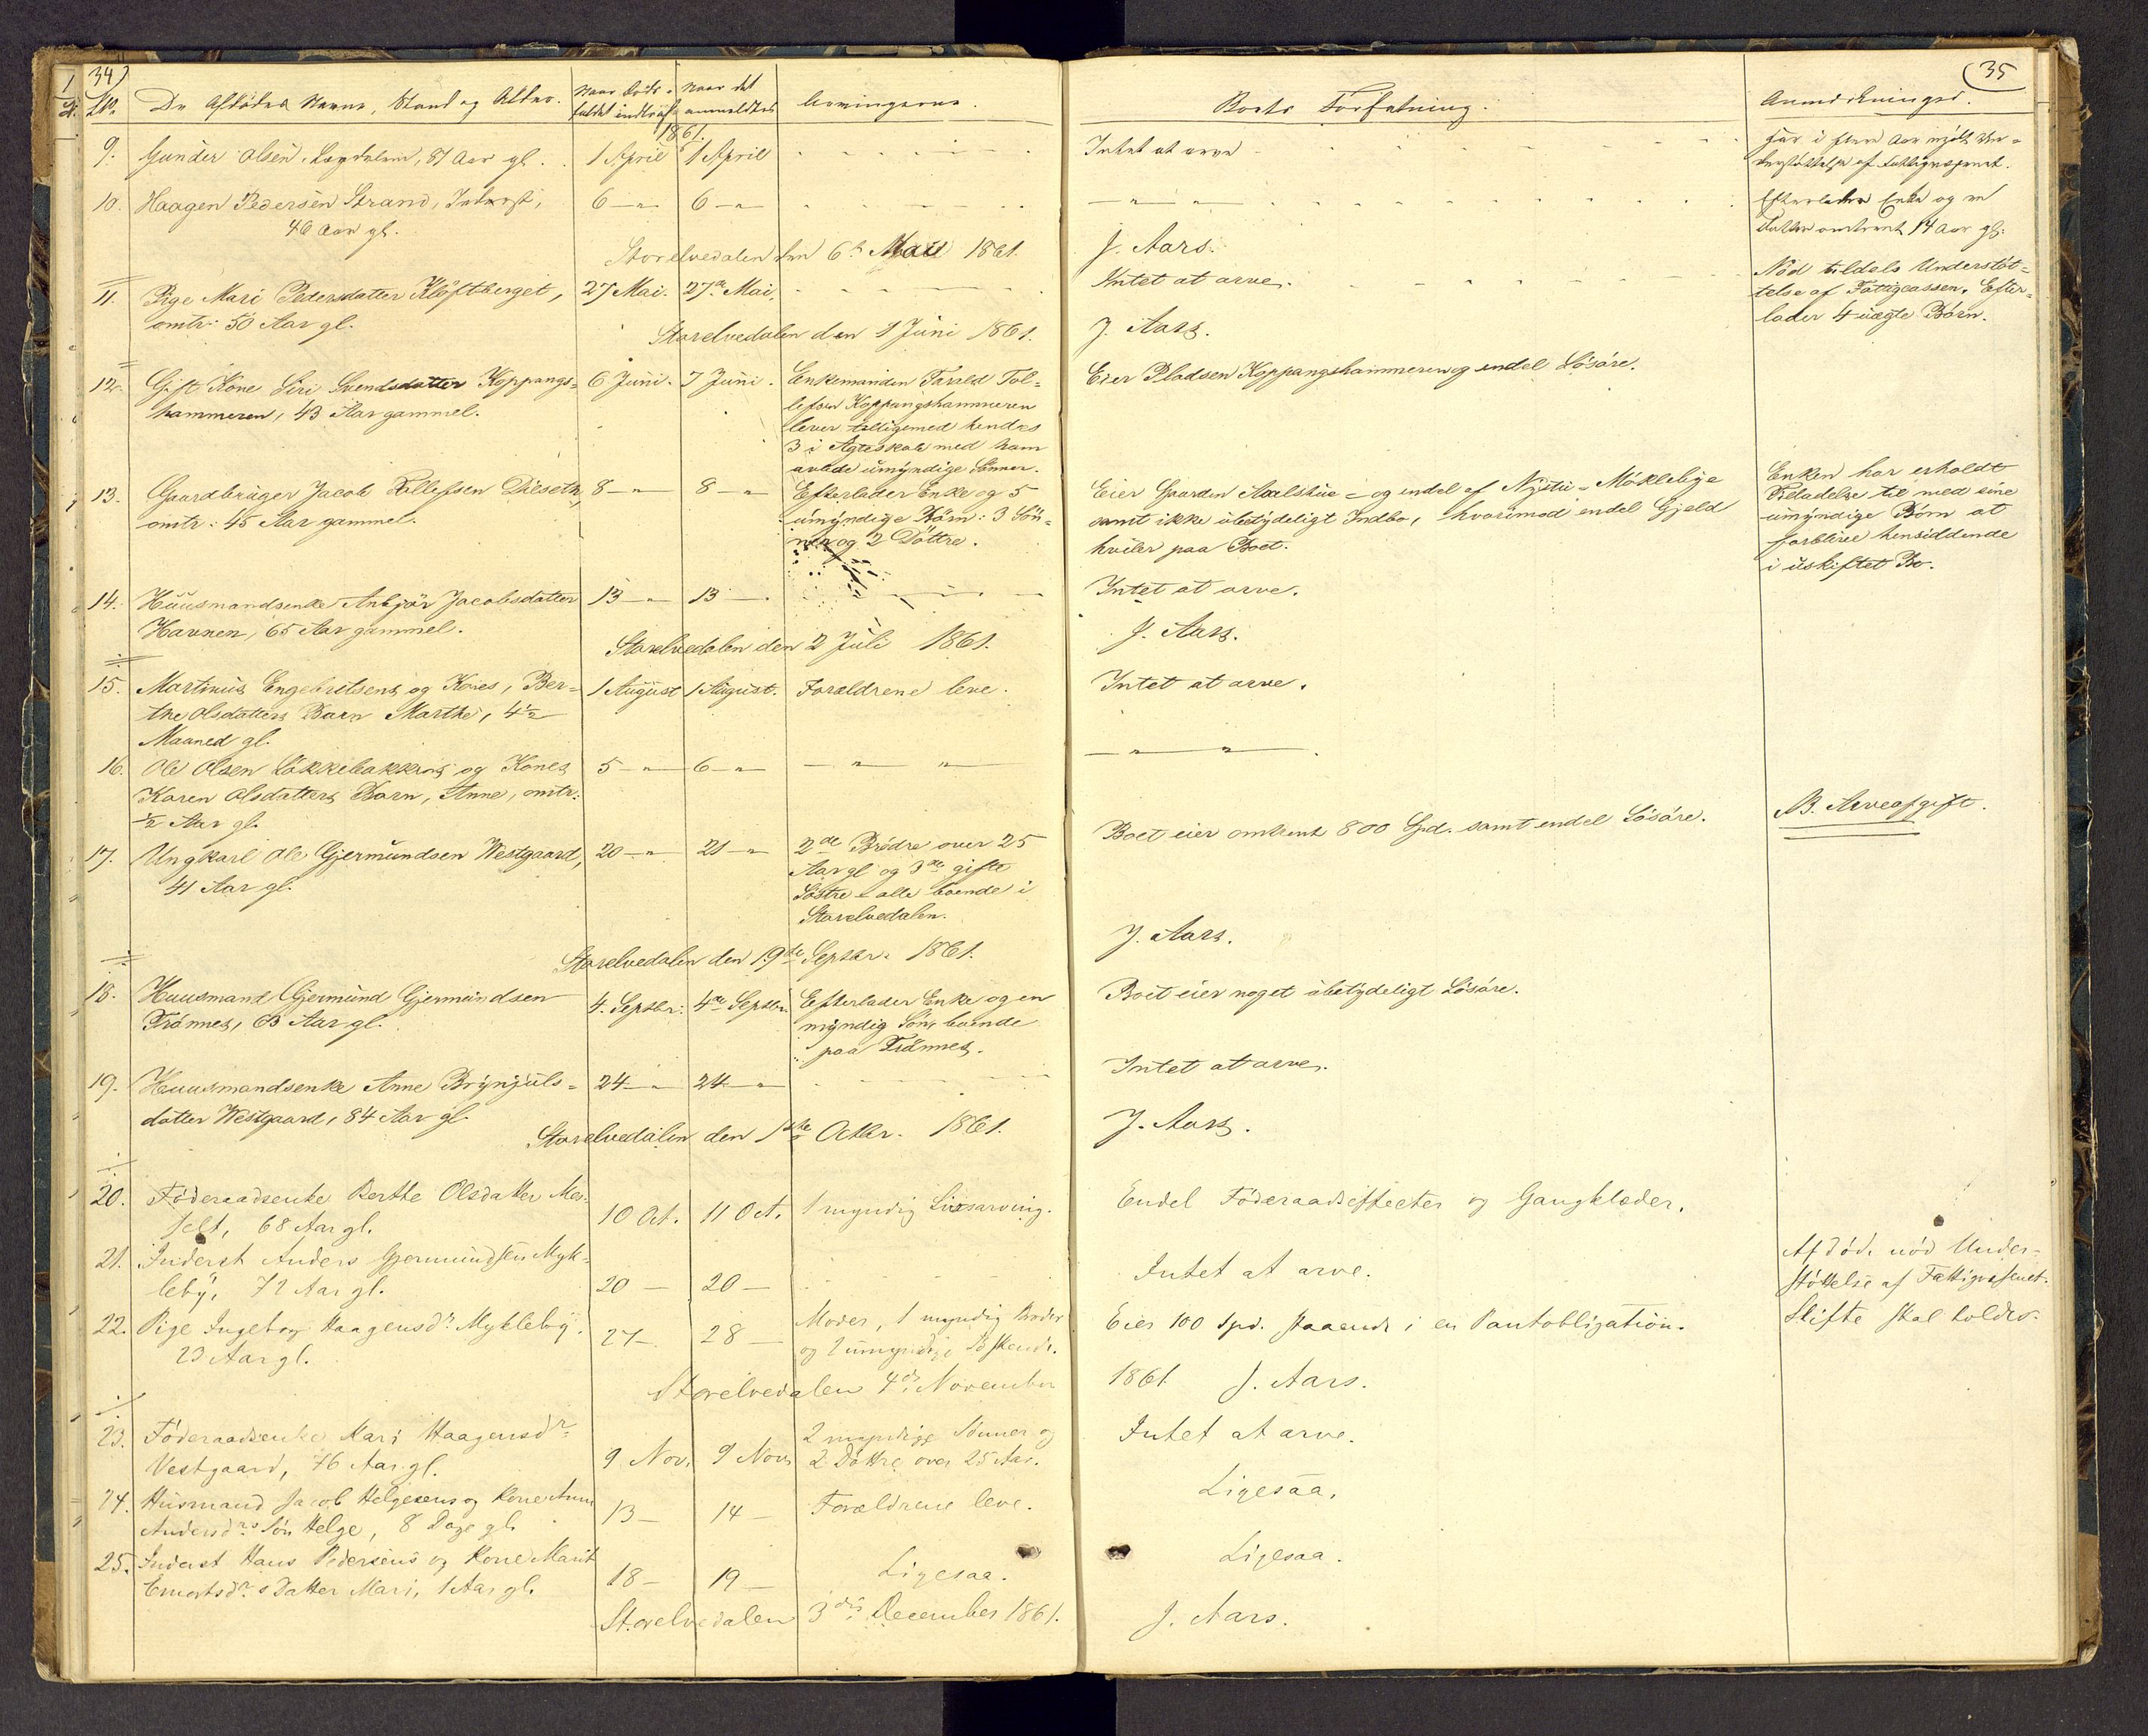 34)
No. De Afdødes Navne, Stand og Alder. Naar Døds- Naar det Arvingerne.
faldet indtraf anmeldtes
1861.
9. Gunder Olsen 87 Aar gl. 1 April 1 April
10. Haagen Pedersen Strand, Inderst, 6 — " 6 — "
46 Aar gl.
Storelvedalen den 6te Mai 1861.
11. Pige Mari Pedersdatter Kløftberget, 27 Mai. 27de Mai.
omtr: 50 Aar gl.
Storelvedalen den 1 Juni 1861.
12. Gift Kone Siri Svendsdatter Koppangs= 6 Juni. 7 Juni. Enkemanden Tarald Tol=
hammeren, 43 Aar gammel. lefsen Koppangshammeren
lever tilligemed hendes
3 i Ægteskab med ham
avlede umyndige Sønner.
13. Gaardbruger Jacob Tollefsen Diseth, 8 — " 8 — " Efterlader Enke og 5
omtr: 45 Aar gammel. umyndige Børn: 3 Søn=
ner og 2 Døttre.
14. Huusmandsenke Anbjør Jacobsdatter 13 — " 13 — "
Havnen, 65 Aar gammel.
Storelvedalen den 2 Juli 1861.
15. Martinus Engebretsens og Kones, Ber= 1 August 1 August. Forældrene leve.
the Olsdatters Barn Marthe, 4½
Maaned gl.
16. Ole Olsen Løkkebakkens og Kones 5 — " 6 — " — " — " —
Karen Olsdatters Barn, Anne, omtr:
½ Aar gl.
17. Ungkarl Ole Gjermundsen Westgaard, 20 — " 21 — " 2de Brødre over 25
41 Aar gl. Aar gl og 3de gifte
Søstre – alle boende i
Storelvedalen.
Storelvedalen den 19de Septbr. 1861.
18. Huusmand Gjermund Gjermundsen 4. Septbr: 4de Septbr. Efterlader Enke og en
Trønnes, 63 Aar gl. myndig Søn, boende
paa Trønnes.
19. Huusmandsenke Anne Brynjuls= 24 — " 24 — "
datter Westgaard, 84 Aar gl.
Storelvedalen den 1ste Octbr. 1861.
20. Føderaadsenke Berthe Olsdatter Mes-
selt, 68 Aar gl. 10 Oct. 11 Oct. 1 myndig Livsarving.
21. Inderst Anders Gjermundsen Myk-
leby, 72 Aar gl. 20 — 20 —
22. Pige Ingeborg Haagensdr. Mykleby. 27 — 28 — Moder, 1 myndig Broder
23 Aar gl. og 2 umyndige Søskende.
Storelvedalen 4de November
23. Føderaadsenke Mari Haagensdr. 2 myndige Sønner og
Vestgaard, 76 Aar gl. 9 Nov. 9 Nov. 2 Døttre over 25 Aar.
24. Husmand Jacob Helgesens og Kone Anne
Andersdrs. Søn Helge, 8 Dage gl. 13 — 14 — Forældrene leve.
25. Inderst Hans Pedersens og Kone Marit
Emortsdr.s Datter Mari, 1 Aar gl. 18 — 19 — Ligesaa.
Storelvedalen 3die December 1861.
(35
Boets Forfatning. Anmærkninger.
Intet at arve Har i flere Aar nydt Un=
derstøttelse af Fattigvæsenet.
— " — " — Efterlader Enke og en
Datter omtrent 14 Aar gl:
J. Aars.
Intet at arve. Nød tildels Understøt=
telse af Fattigcassen. Efter=
lader 4 uægte Børn.
J. Aars.
Eier Pladsen Koppangshammeren og endel Løsøre.
Eier Gaarden Axelstue – og endel af Nystu – Møkleby Enken har erholdt
samt ikke ubetydeligt Indbo, hvorimod endel Gjeld Tilladelse til med sine
hviler paa Boet. umyndige Børn at
forblive hensiddende
i uskiftet Bo.
Intet at arve.
J. Aars.
Intet at arve.
— " — " —
Boet eier omtrent 800 Spd. samt endel Løsøre. NB. Arveafgift.
J. Aars.
Boet eier noget ubetydeligt Løsøre.
Intet at arve.
J. Aars.
Endel Føderaadseffecter og Gangklæder.
Intet at arve. Afdøde nød Under-
støttelse af Fattigvæsenet.
Eier 100 Spd. staaende i en Pantobligation. Skifte skal holdes.
1861 J. Aars.
Intet at arve.
Ligesaa.
Ligesaa.
J. Aars.